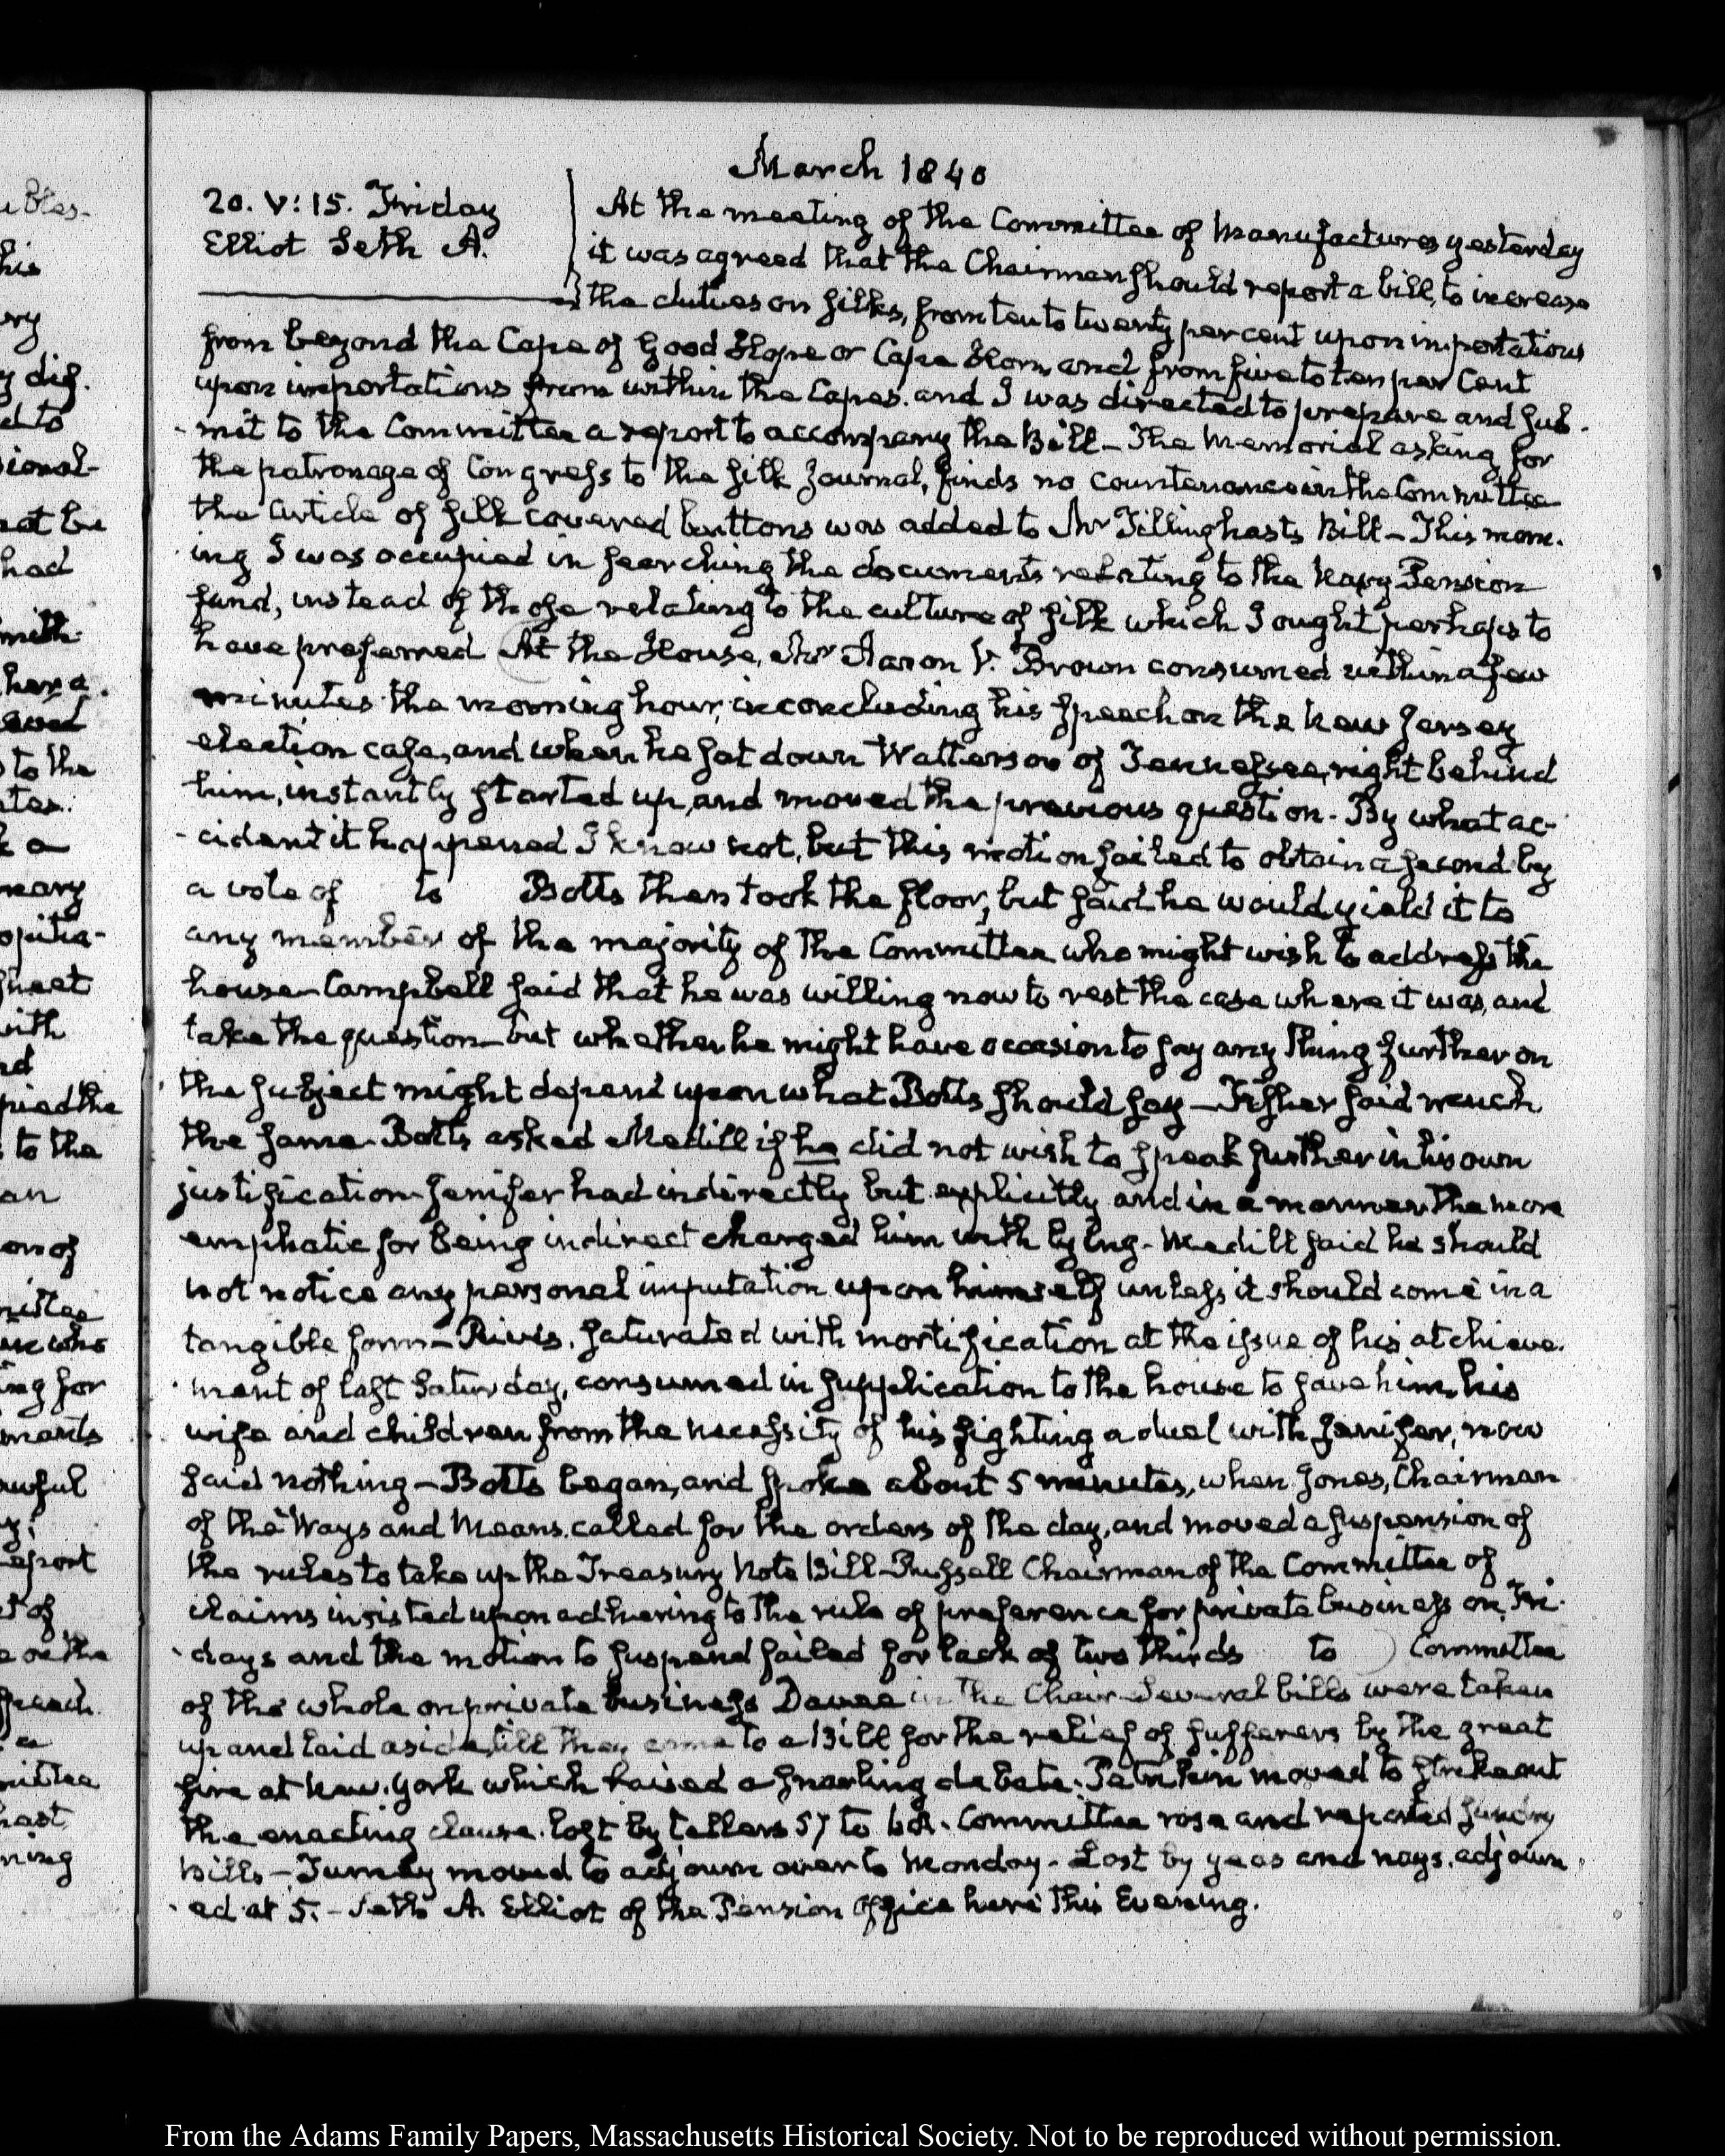 March 1840
20. V: 15. Friday
Elliot Seth A.
At the meeting of the Committee of Manufactures yesterday
it was agreed that the Chairman should report a bill, to increase
the duties on silks, from ten to twenty per cent upon importations
from beyond the Cape of Good Hope or Cape Horn, and from five to ten per Cent
upon importations from within the Capes. and I was directed to prepare and sub-
-mit to the Committee a report to accompany the Bill – The Memorial asking for
the patronage of Congress to the Silk Journal, finds no countenance in the Committee
the article of silk covered buttons was added to Mr Tillinghasts Bill – This morn-
-ing I was occupied in searching the documents relating to the Navy Pension
fund, instead of those relating to the culture of silk which I ought perhaps to
have preferred At the House, Mr Aaron V. Brown consumed within a few
minutes the morning hour, in concluding his speech on the New Jersey
election case, and when he sat down Watterson of Tennessee, right behind
him, instantly started up, and moved the previous question. By what ac-
-cident it happened I know not, but this motion failed to obtain a second by
a vote of to Botts then took the floor, but said he would yield it to
any member of the majority of the Committee who might wish to address the
house – Campbell said that he was willing now to rest the case where it was, and
take the question – but whether he might have occasion to say any thing further on
the subject might depend upon what Botts should say – Fisher said much
the same – Botts asked Medill if he did not wish to speak further in his own
justification – Jenifer had indirectly but explicitly and in a manner the more
emphatic for being indirect charged him with lying – Medill said he should
not notice any personal imputation upon himself unless it should come in a
tangible form – Rives, saturated with mortification at the issue of his atchieve-
-ment of last Saturday, consumed in supplication to the house to save him, his
wife and children from the necessity of his fighting a duel with Jenifer, now
said nothing – Botts began, and spoke about 5 minutes, when Jones, Chairman
of the Ways and Means. called for the orders of the day, and moved a suspension of
the rules to take up the Treasury Note Bill – Russell Chairman of the Committee of
claims insisted upon adhering to the rule of preference for private business on Fri-
-days and the motion to suspend failed for lack of two thirds to ) Committee
of the whole on private business Davee in the Chair – Several bills were taken
up and laid aside, till they came to a Bill for the relief of sufferers by the great
fire at New-York which raised a snarling debate. Petrikin moved to strike out
the enacting clause. lost by tellers 57 to 62. Committee rose and reported sundry
bills – Turney moved to adjourn over to Monday – Lost by yeas and nays. adjourn-
-ed at 5. – Seth A. Elliot of the Pension Office here this Evening.
From the Adams Family Papers, Massachusetts Historical Society. Not to be reproduced without permission.